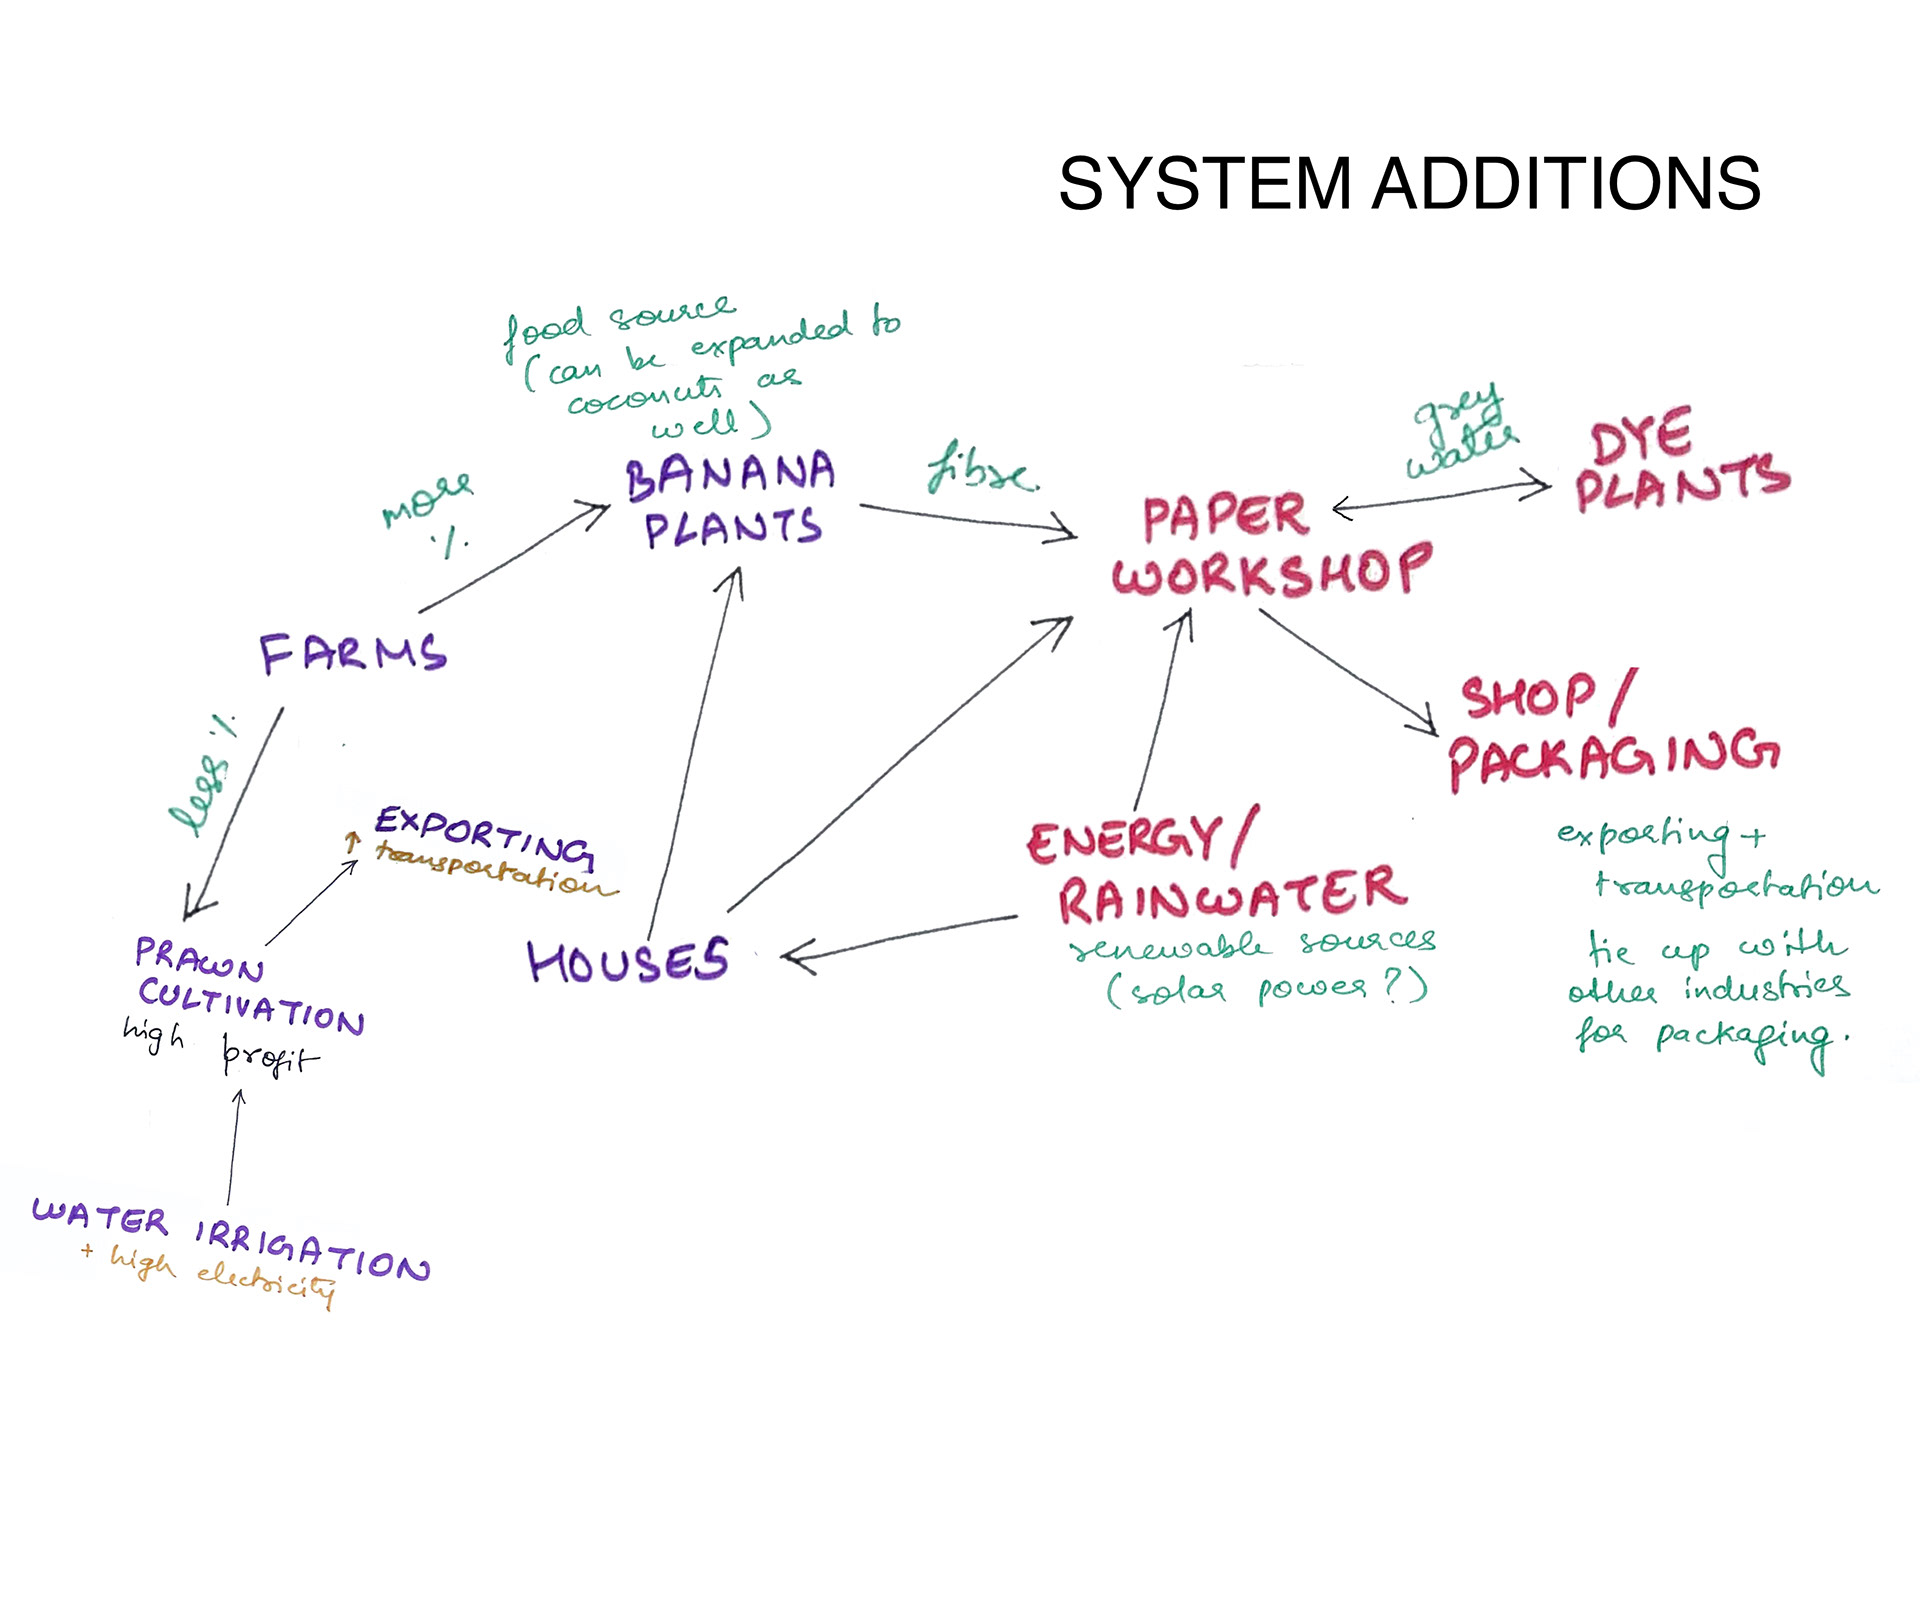 SYSTEM ADDITIONS
food source
(can be expanded to
coconuts as
well)
BANANA
PLANTS
more
%
fibre
grey
water
DYE
PLANTS
PAPER
WORKSHOP
FARMS
less %
SHOP/
PACKAGING
exporting +
transportation
tie up with
other industries
for packaging.
EXPORTING
↑ transportation
ENERGY/
RAINWATER
renewable sources
(solar power?)
HOUSES
PRAWN
CULTIVATION
high profit
WATER IRRIGATION
+ high electricity